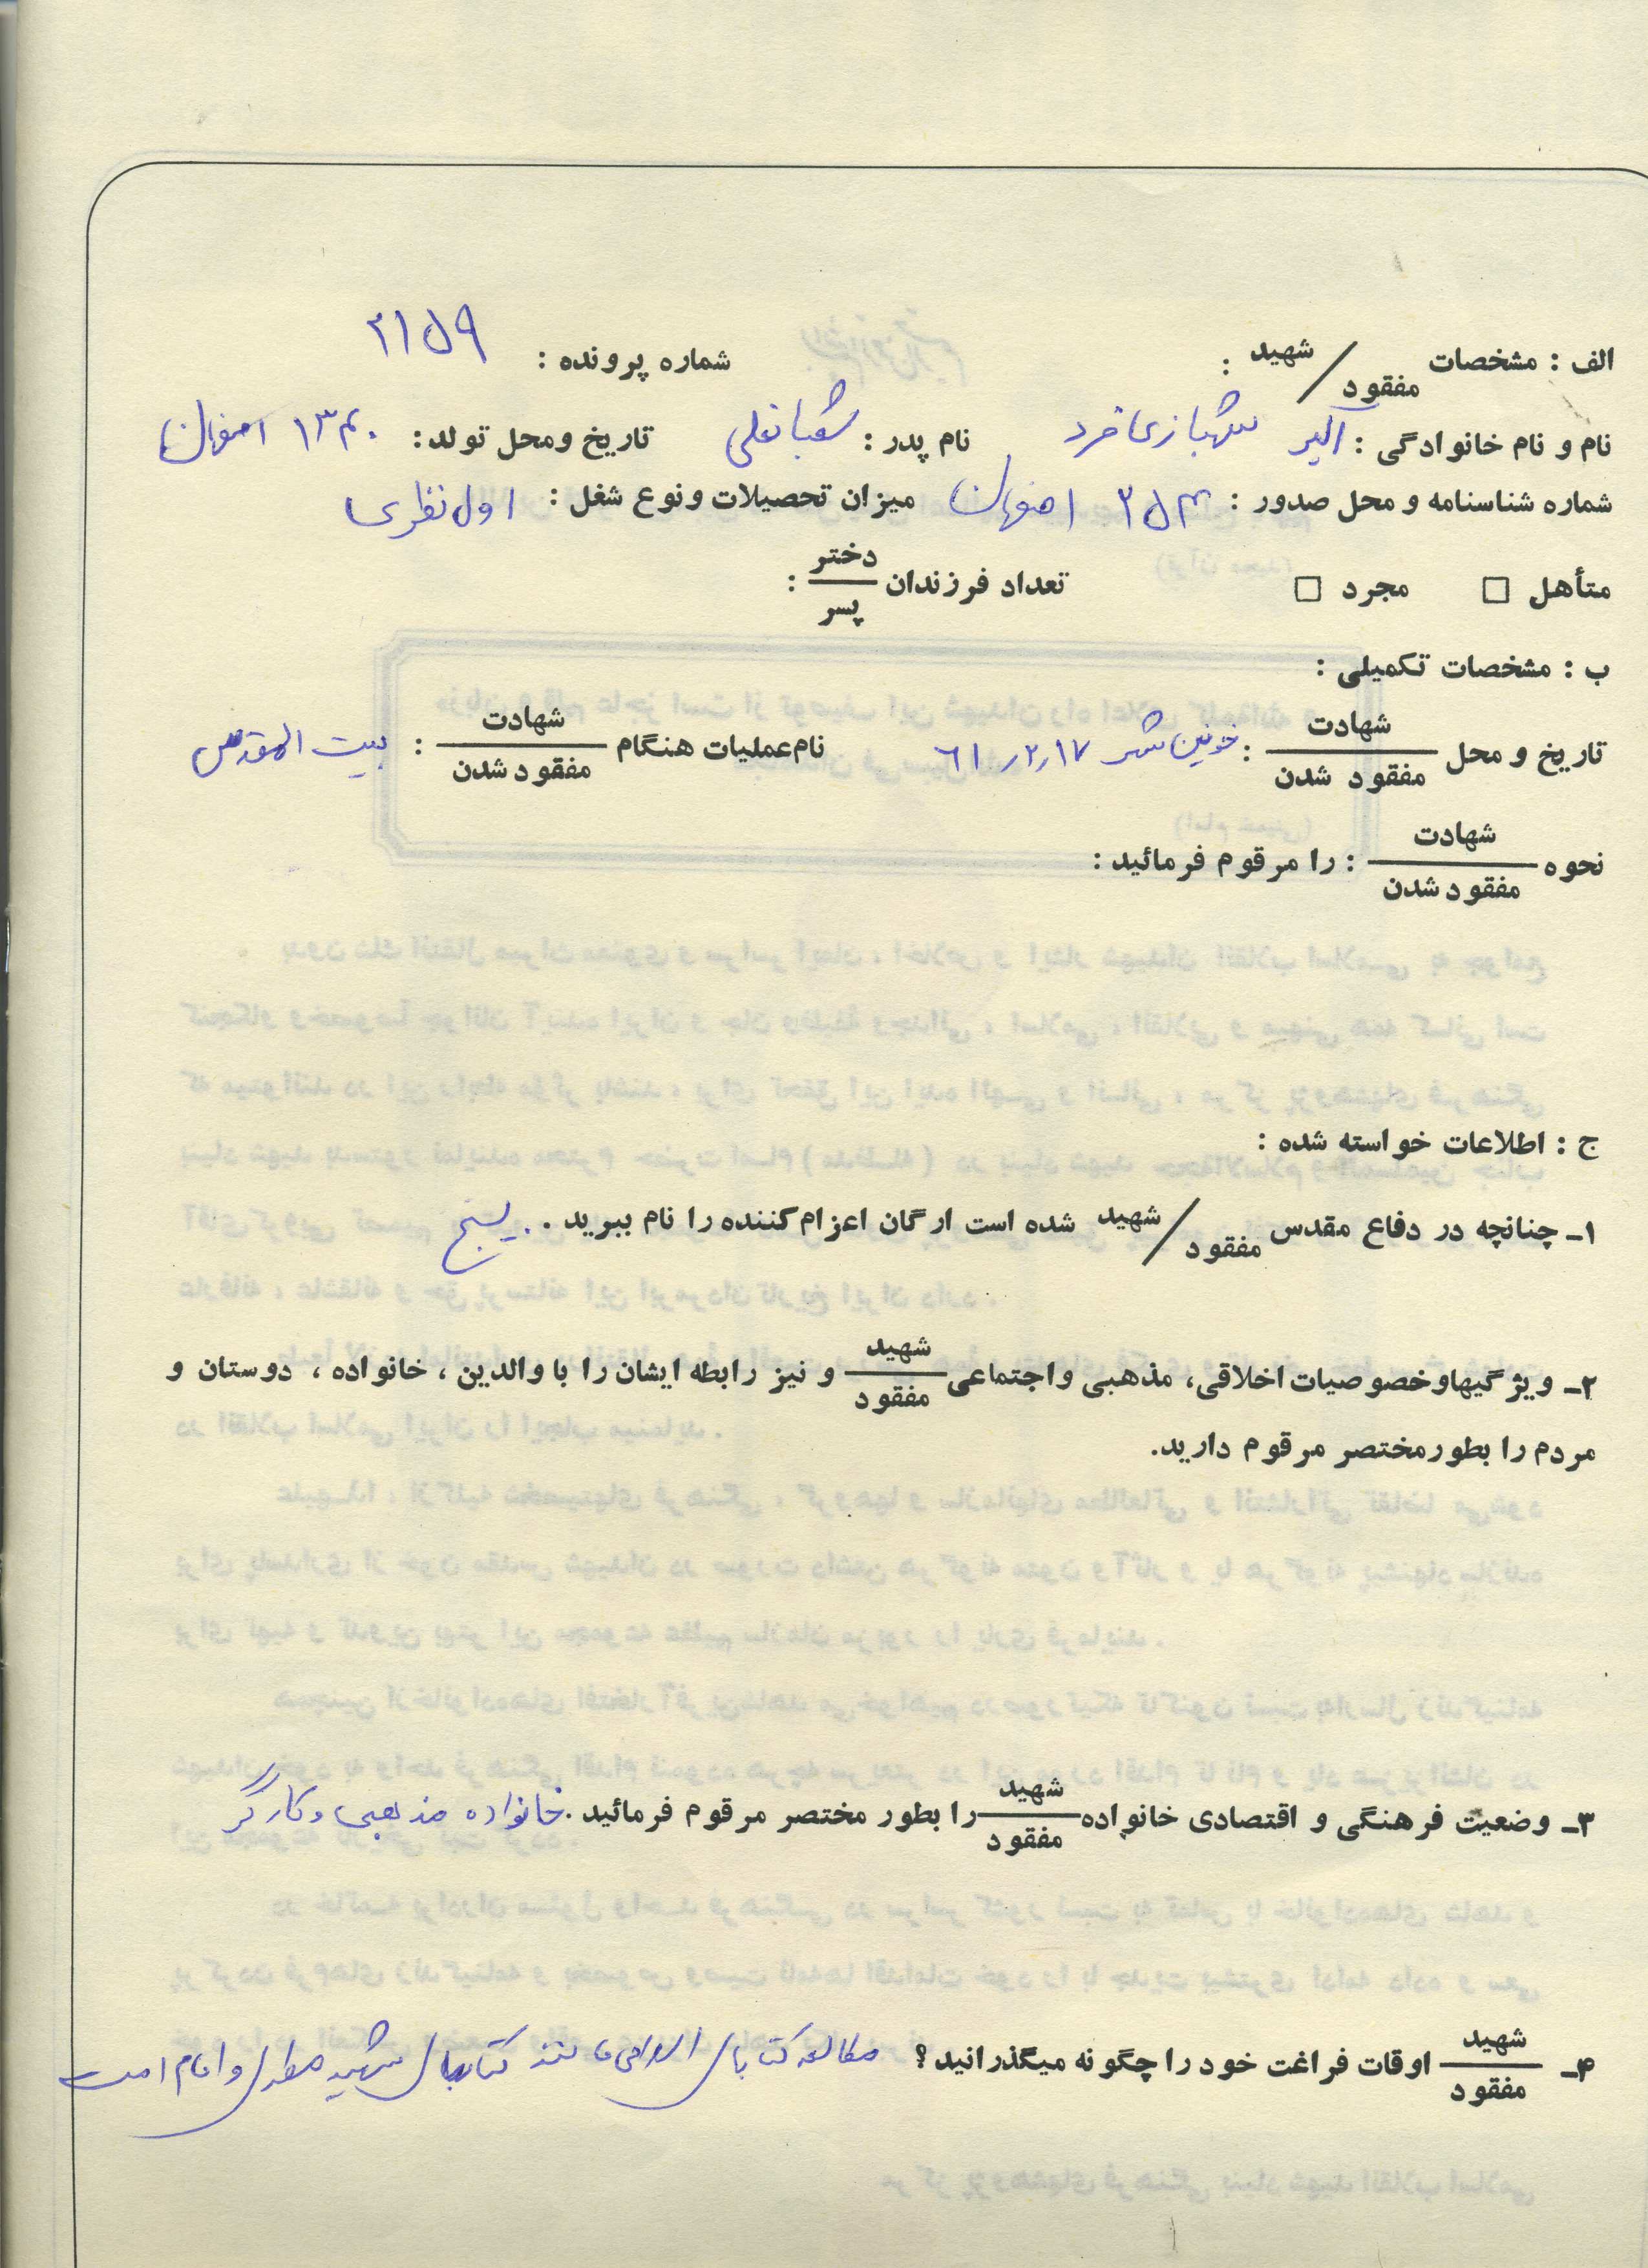 الف : مشخصات شهید / مفقود : شماره پرونده : ۲۱۵۹
نام و نام خانوادگی : اکبر شهبازی فرد نام پدر : شعبانعلی تاریخ ومحل تولد : ۱۳۴۰ اصفهان
شماره شناسنامه و محل صدور : ۳۵۴ اصفهان میزان تحصیلات ونوع شغل : اول نظری
متأهل □ مجرد □ تعداد فرزندان دختر / پسر :
ب : مشخصات تکمیلی :
تاریخ و محل شهادت / مفقود شدن : خونین شهر ۶۱٫۲٫۱۷ نام عملیات هنگام شهادت / مفقود شدن : بیت المقدس
نحوه شهادت / مفقود شدن : را مرقوم فرمائید :
ج : اطلاعات خواسته شده :
۱ـ چنانچه در دفاع مقدس شهید / مفقود شده است ارگان اعزام کننده را نام ببرید . بسیج
۲ـ ویژگیهاوخصوصیات اخلاقی، مذهبی واجتماعی شهید / مفقود و نیز رابطه ایشان را با والدین ، خانواده ، دوستان و
مردم را بطورمختصر مرقوم دارید.
۳ـ وضعیت فرهنگی و اقتصادی خانواده شهید / مفقود را بطور مختصر مرقوم فرمائید . خانواده مذهبی وکارگر
۴ـ شهید / مفقود اوقات فراغت خود را چگونه میگذرانید ؟ مطالعه کتابهای اسلامی مانند کتابهای شهید مطهری و امام امت